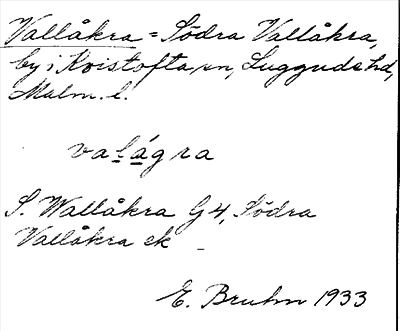 Vallåkra = Södra Vallåkra,
by i Kvistofta sn, Luggude hd,
Malm. l.
valágra
S. Wallåkra G4, Södra
Vallåkra ek
E. Bruhn 1933